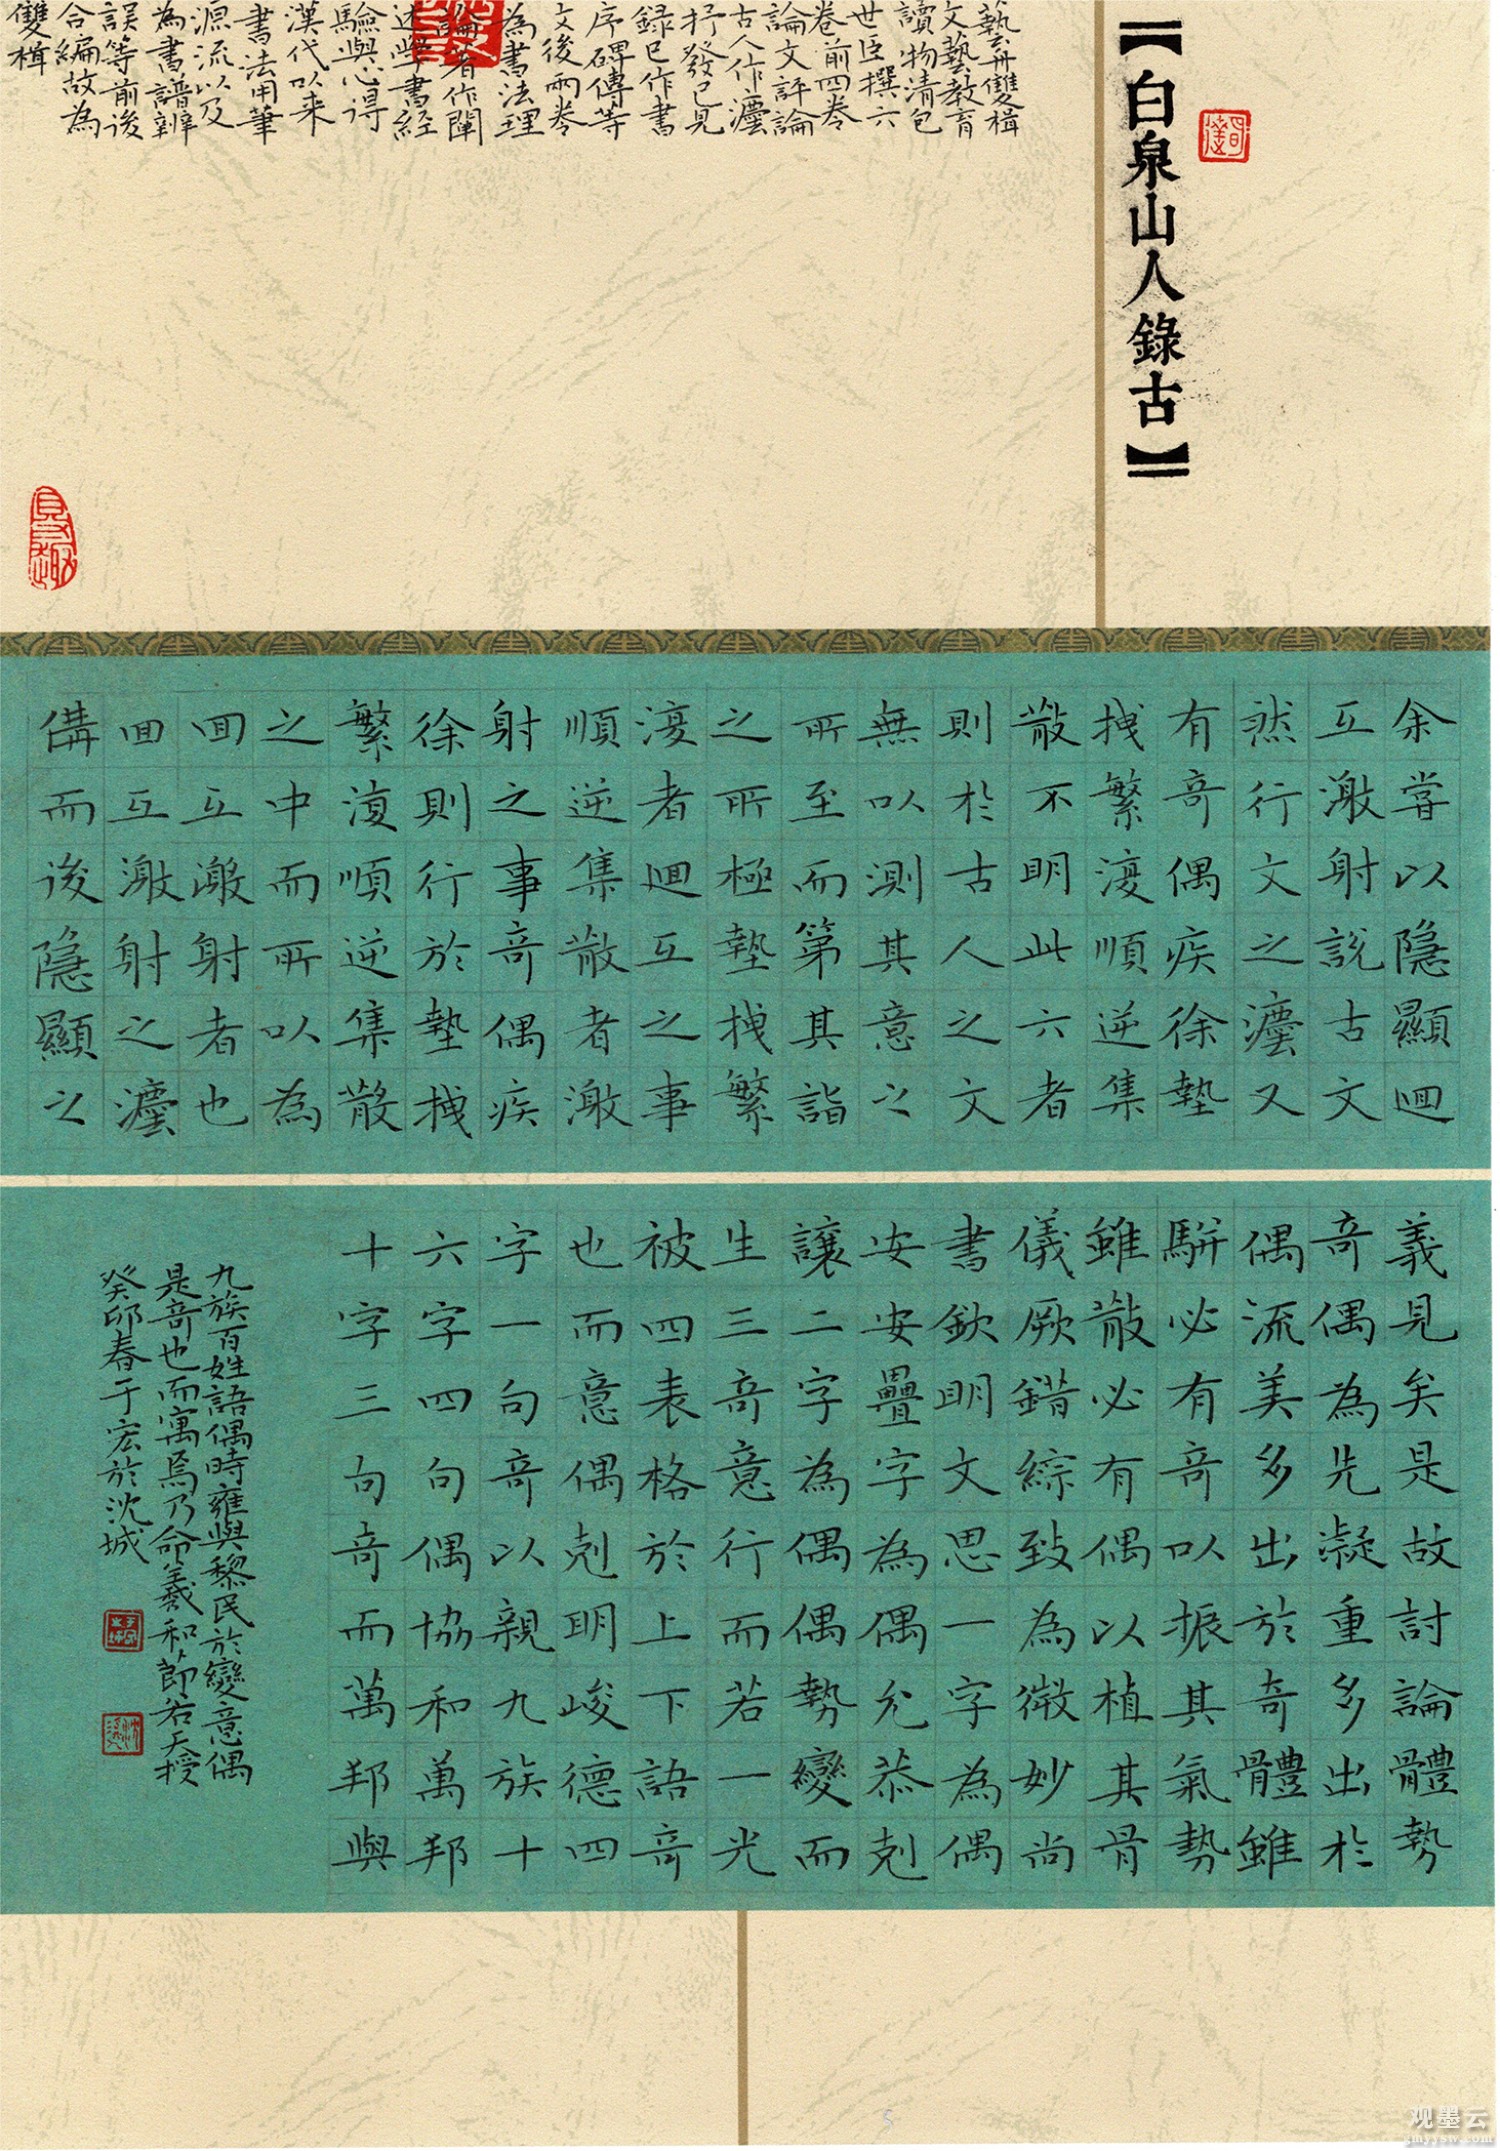 【白泉山人錄古】
藝舟雙楫
文藝教育
讀物清包
世臣撰六
卷前四卷
論文評論
古人作灋
抒發己見
録已作書
序碑傳等
文後兩卷
為書法理
論著作闡
述學書經
驗與心得
漢代以来
書法用筆
源流以及
為書譜辨
誤等前後
合編故為
雙楫
余嘗以隱顯迴
互激射説古文
然行文之灋又
有奇偶疾徐墊
拽繁複順逆集
散不明此六者
則於古人之文
無以測其意之
所至而第其詣
之所極墊拽繁
複者迴互之事
順逆集散者激
射之事奇偶疾
徐則行於墊拽
繁複順逆集散
之中而所以為
回互激射者也
回互激射之灋
備而後隱顯之
義見矣是故討論體勢
奇偶為先凝重多出於
偶流美多出於奇體雖
駢必有奇以振其氣勢
雖散必有偶以植其骨
儀厥錯綜致為微妙尚
書欽明文思一字為偶
安安疊字為偶允恭剋
讓二字為偶偶勢變而
生三奇意行而若一光
被四表格於上下語奇
也而意偶剋明峻德四
字一句奇以親九族十
六字四句偶協和萬邦
十字三句奇而萬邦與
九族百姓語偶時雍與黎民於變意偶
是奇也而寓焉乃命羲和節若天授
癸卯春于宏於沈城
观墨云
jmyysw.com